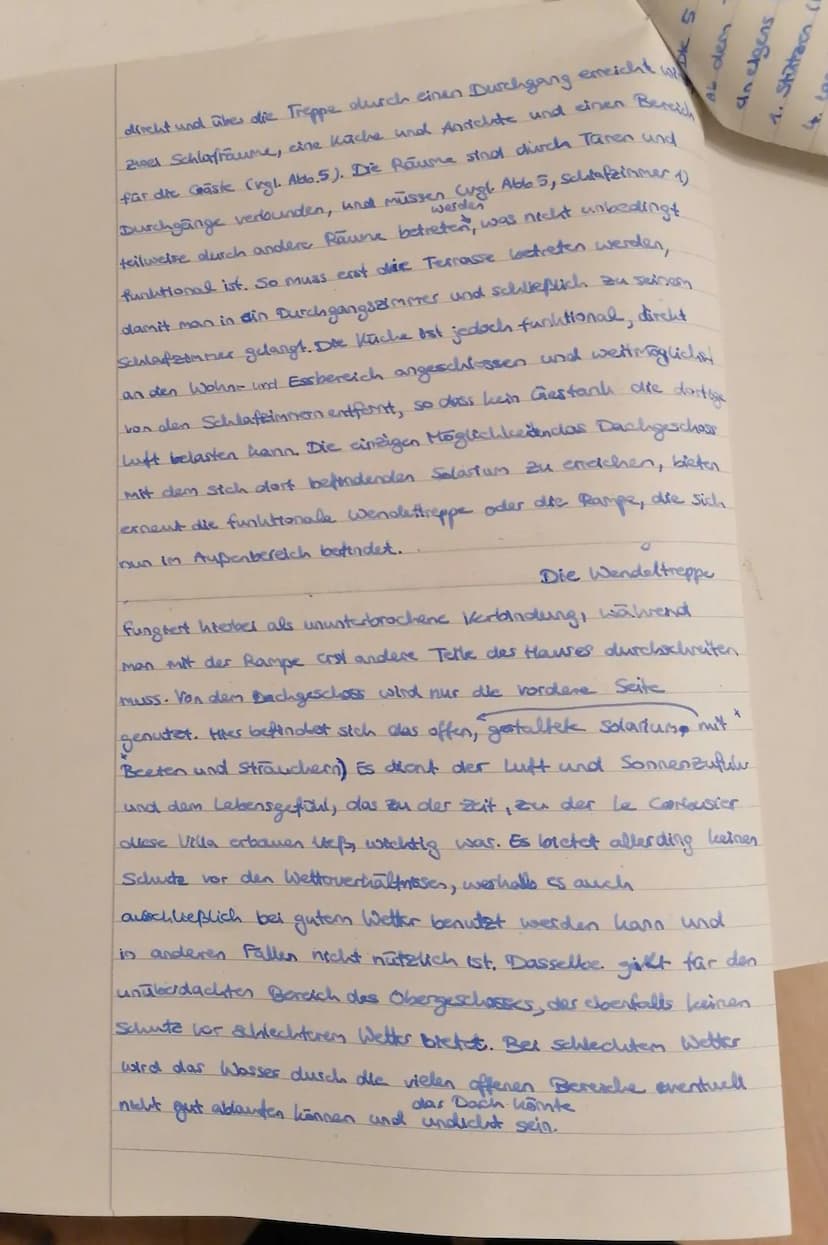 direkt und über die Treppe durch einen Durchgang erreicht
zwei Schlafräume, eine Küche und Anrichte und einen Bereich
für die Gäste (vgl. Abb. 5). Die Räume sind durch Türen und
Durchgänge verbunden, und müssen (vgl. Abb 5, Schlafzimmer 1)
werden
teilweise durch andere Räume betreten, was nicht unbedingt
funktional ist. So muss erst die Terrasse betreten werden,
damit man in ein Durchgangszimmer und schließlich zu seinem
Schlafzimmer gelangt. Die Küche ist jedoch funktional, direkt
an den Wohn- und Essbereich angeschlossen und weitmöglichst
von den Schlafzimmern entfernt, so dass kein Gestank die dortige
Luft belasten kann. Die einzigen Möglichkeiten das Dachgeschoss
mit dem sich dort befindenden Solarium zu erreichen, bieten
erneut die funktionale Wendeltreppe oder die Rampe, die sich
nun im Außenbereich befindet.
Die Wendeltreppe
fungiert hierbei als ununterbrochene Verbindung, während
man mit der Rampe erst andere Teile des Hauses durchschreiten
muss. Von dem Dachgeschoss wird nur die vordere Seite
genutzt. Hier befindet sich das offen, gestaltete Solarium, mit *
* Beeten und Sträuchern) Es dient der Luft und Sonnenzufuhr
und dem Lebensgefühl, das zu der Zeit, zu der Le Corbusier
diese Villa erbauen ließ, wichtig war. Es bietet allerding keinen
Schutz vor den Wetterverhältnissen, weshalb es auch
ausschließlich bei gutem Wetter benutzt werden kann und
in anderen Fällen nicht nützlich ist. Dasselbe gilt für den
unüberdachten Bereich des Obergeschosses, der ebenfalls keinen
Schutz vor schlechterem Wetter bietet. Bei schlechtem Wetter
wird das Wasser durch die vielen offenen Bereiche eventuell
das Dach könnte
nicht gut ablaufen können und undicht sein.
Ab dem
aneigens
1. Stützen